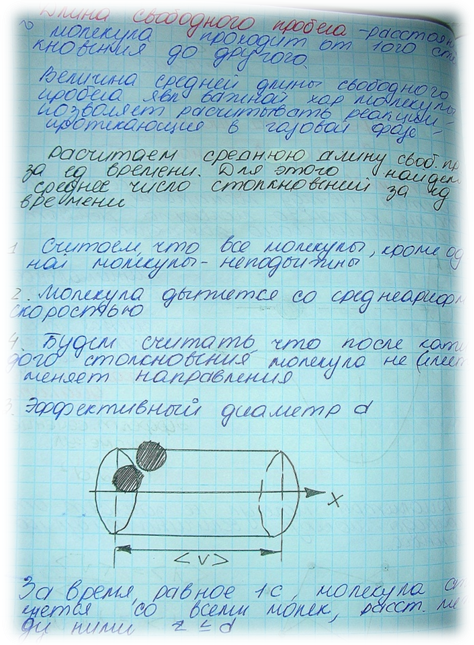 Длина свободного пробега - расстоян
молекула проходит от 1ого ст
кновыния до другого.
Величина средней длины свободного
пробега явл важной хар молекулы
позволяет расчитывать реакции
протекающие в газовой фазе
Расчитаем среднюю длину своб. пр
за ед времени. Для этого найдем
среднее число столкновыний за ед
времени
1 Считаем что все молекулы, кроме од
ной молекулы - неподвижны
2. Молекула движется со среднеарифм
скоростью
4. Будем считать что после каж
дого столкновыния молекула не
меняет направления
3. Эффективный диаметр d
x
<v>
За время, равное 1с, молекула ст
нется со всеми молек, расст. ме
ду ними r ≤ d